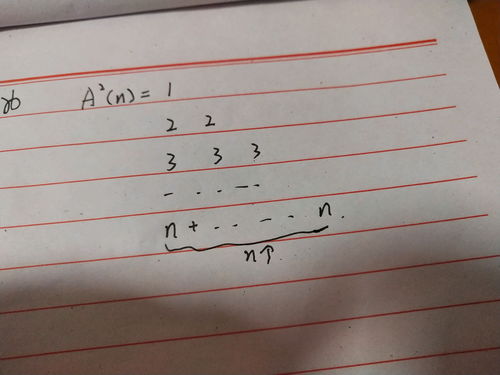 A²(n) = 1
2 2
3 3 3
- . . - -
n + . . - . . n.
n个